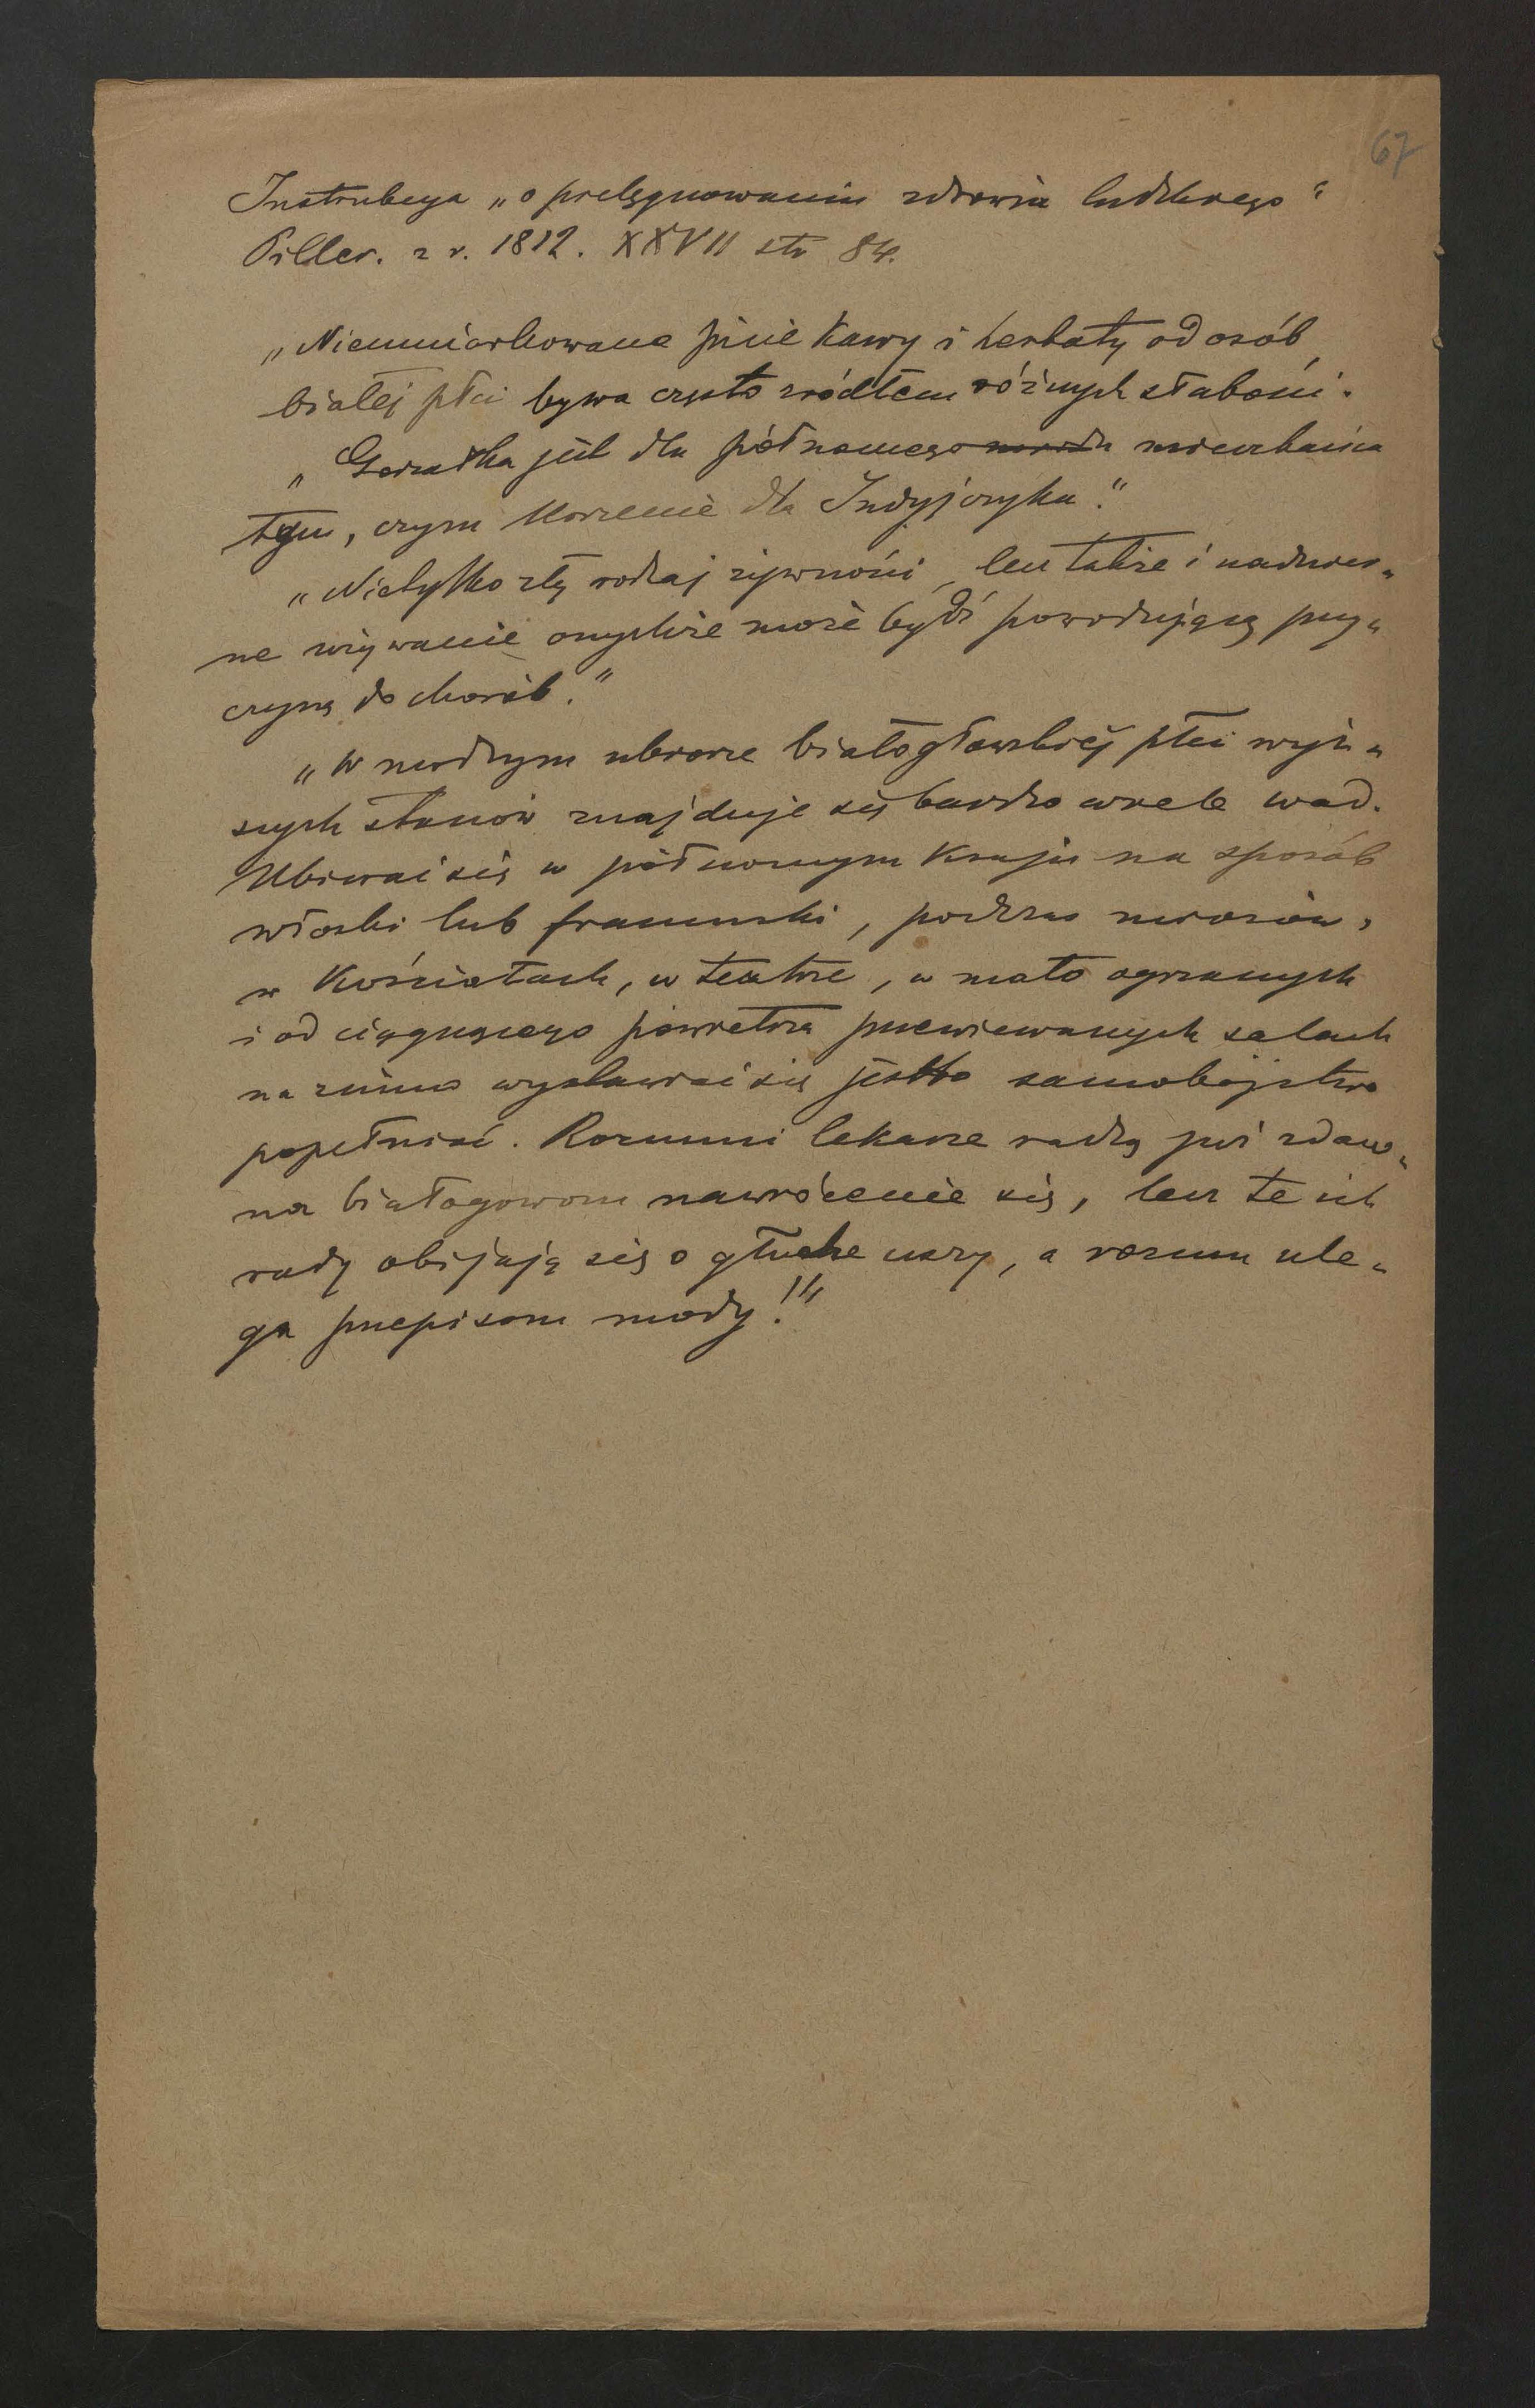 67
Instrukcya „o pielęgnowaniu zdrowia ludzkiego“
Piller. z r. 1812. XXVII str 84.
„Nieumiarkowane picie kawy i herbaty od osób
białej płci bywa często źródłem różnych słabości.
„Gorzałka jest dla północnego narodu mieszkańca
tem, czym korzenie dla Indyjczyka.“
„Nietylko zły rodzaj żywności, lecz także i nadmier„
ne używanie onychże może bydź powodującą przy„
czyną do chorób.“
„W modnym ubiorze białogłowskiéj płci wyż„
szych stanów znajduje się bardzo wiele wad.
Ubierać się w północnym kraju na sposób
włoski lub francuski, podczas mrozów,
w kościołach, w teatrze, w mało ogrzanych
i od ciągnącego powietrza przewiewanych salach
na zimno wystawiać się jestto samobójstwo
popełniać. Rozumni lekarze radzą już zdaw„
na białogowom nawrócenie się, lecz te ich
rady obijają się o głuche uszy, a rozum ule„
ga przepisom mody!“